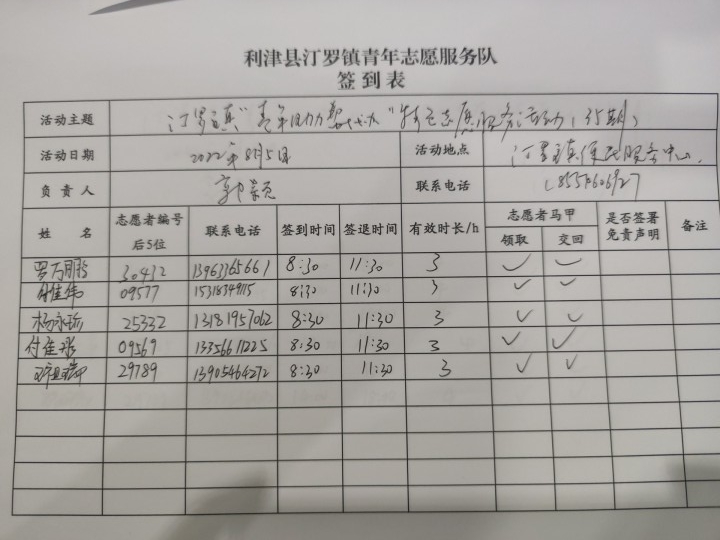 利津县汀罗镇青年志愿服务队
签到表
活动主题 汀罗镇"青年助力 "特色志愿服务活动(35期)
活动日期 2022年8月5日 活动地点 汀罗镇便民服务中心
负责人 郭景 联系电话 18557606927
姓 名 志愿者编号后5位 联系电话 签到时间 签退时间 有效时长/h 志愿者马甲 领取 交回 是否签署免责声明 备注
罗万鹏 30432 13963365661 8:30 11:30 3 ✓ ✓
付佳伟 09577 15318349115 8:30 11:30 3 ✓ ✓
杨永珍 25332 13181957062 8:30 11:30 3 ✓ ✓
付佳彤 09569 13356611225 8:30 11:30 3 ✓ ✓
29789 13905464272 8:30 11:30 3 ✓ ✓